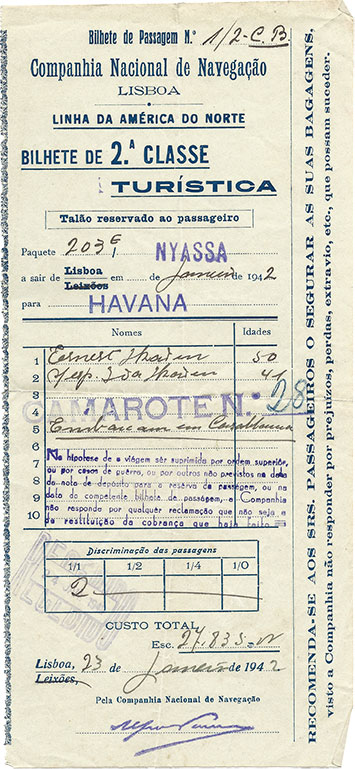 Bilhete de Passagem N.º 1/2-C.B.
Companhia Nacional de Navegação
LISBOA
LINHA DA AMÉRICA DO NORTE
BILHETE DE 2.ª CLASSE
TURÍSTICA
Talão reservado ao passageiro
Paquete 203 NYASSA
a sair de Lisboa em de Janeiro de 1942
Leixões
para HAVANA
Nomes Idades
1 Ernest 50
2 Esp. Ida 41
3
4 CAMAROTE N.º 28
5 Embarcam em Casablanca
6
7
8
9
10
Na hipotese de a viagem ser suprimida por ordem superior,
ou por casos de guerra, ou por outros não previstos na data
da nota de depósito para a reserva de passagem, ou na
data do competente bilhete de passagem, a Companhia
não responde por qualquer reclamação que não seja a
da restituição da cobrança que haja feito
Discriminação das passagens
1/1 1/2 1/4 1/0
2
CUSTO TOTAL
Esc. 27.835
Lisboa, 23 de Janeiro de 1942
Leixões,
Pela Companhia Nacional de Navegação
RECOMENDA-SE AOS SRS. PASSAGEIROS O SEGURAR AS SUAS BAGAGENS,
visto a Companhia não responder por prejuízos, perdas, extravio, etc., que possam suceder.